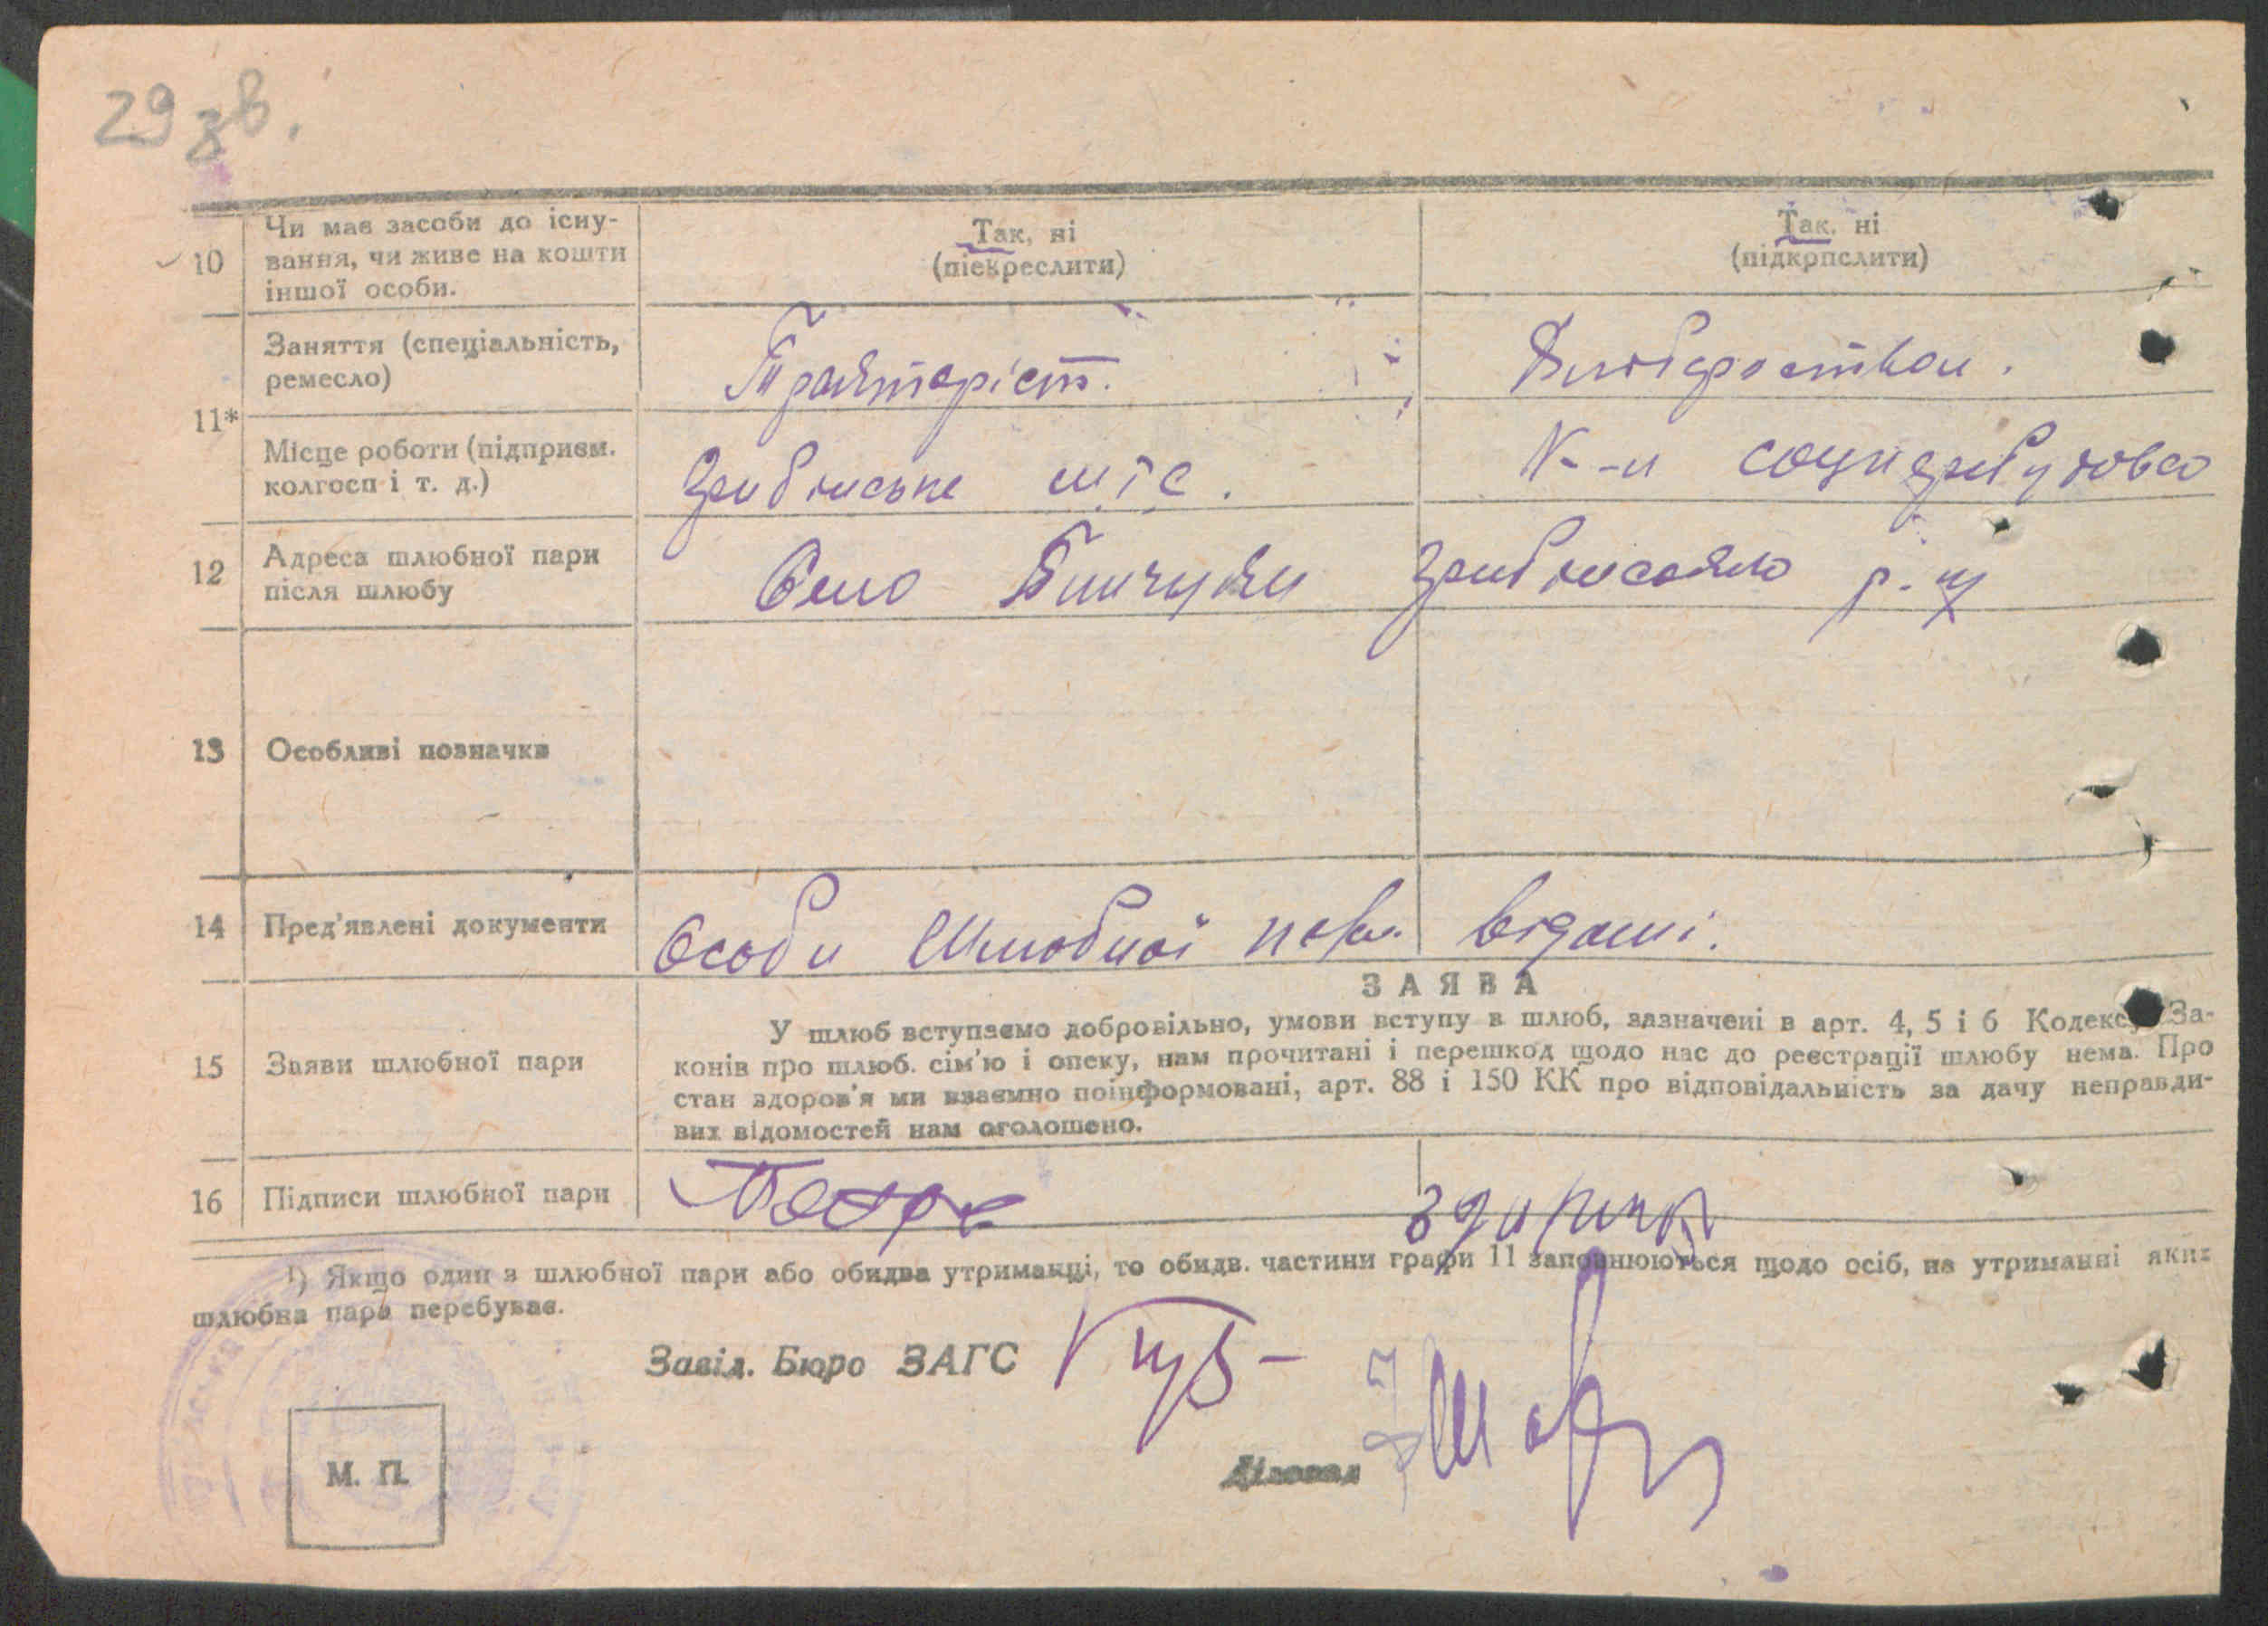 29 зв.
10 Чи має засоби до існу-
вання, чи живе на кошти
іншої особи.
Так, ні
(піекреслити)
Так, ні
(підкрпслити)
11*
Заняття (спеціальність,
ремесло)
Тракторіст.
Місце роботи (підприєм.
колгосп і т. д.)
мтс.
К-п
12 Адреса шлюбної пари
після шлюбу
Село р-н
13 Особливі позначки
14 Пред'явлені документи
Особи шлюбної відомі.
15 Заяви шлюбної пари
ЗАЯВА
У шлюб вступаємо добровільно, умови вступу в шлюб, зазначені в арт. 4, 5 і 6 Кодексу За-
конів про шлюб. сім'ю і опеку, нам прочитані і перешкод щодо нас до реєстрації шлюбу нема. Про
стан здоров'я ми взаємно поінформовані, арт. 88 і 150 КК про відповідальність за дачу неправди-
вих відомостей нам оголошено.
16 Підписи шлюбної пари
1) Якщо один з шлюбної пари або обидва утриманці, то обидв. частини графи 11 заповнюються щодо осіб, на утриманні яких
шлюбна пара перебуває.
Завід. Бюро ЗАГС
Діловод
М. П.